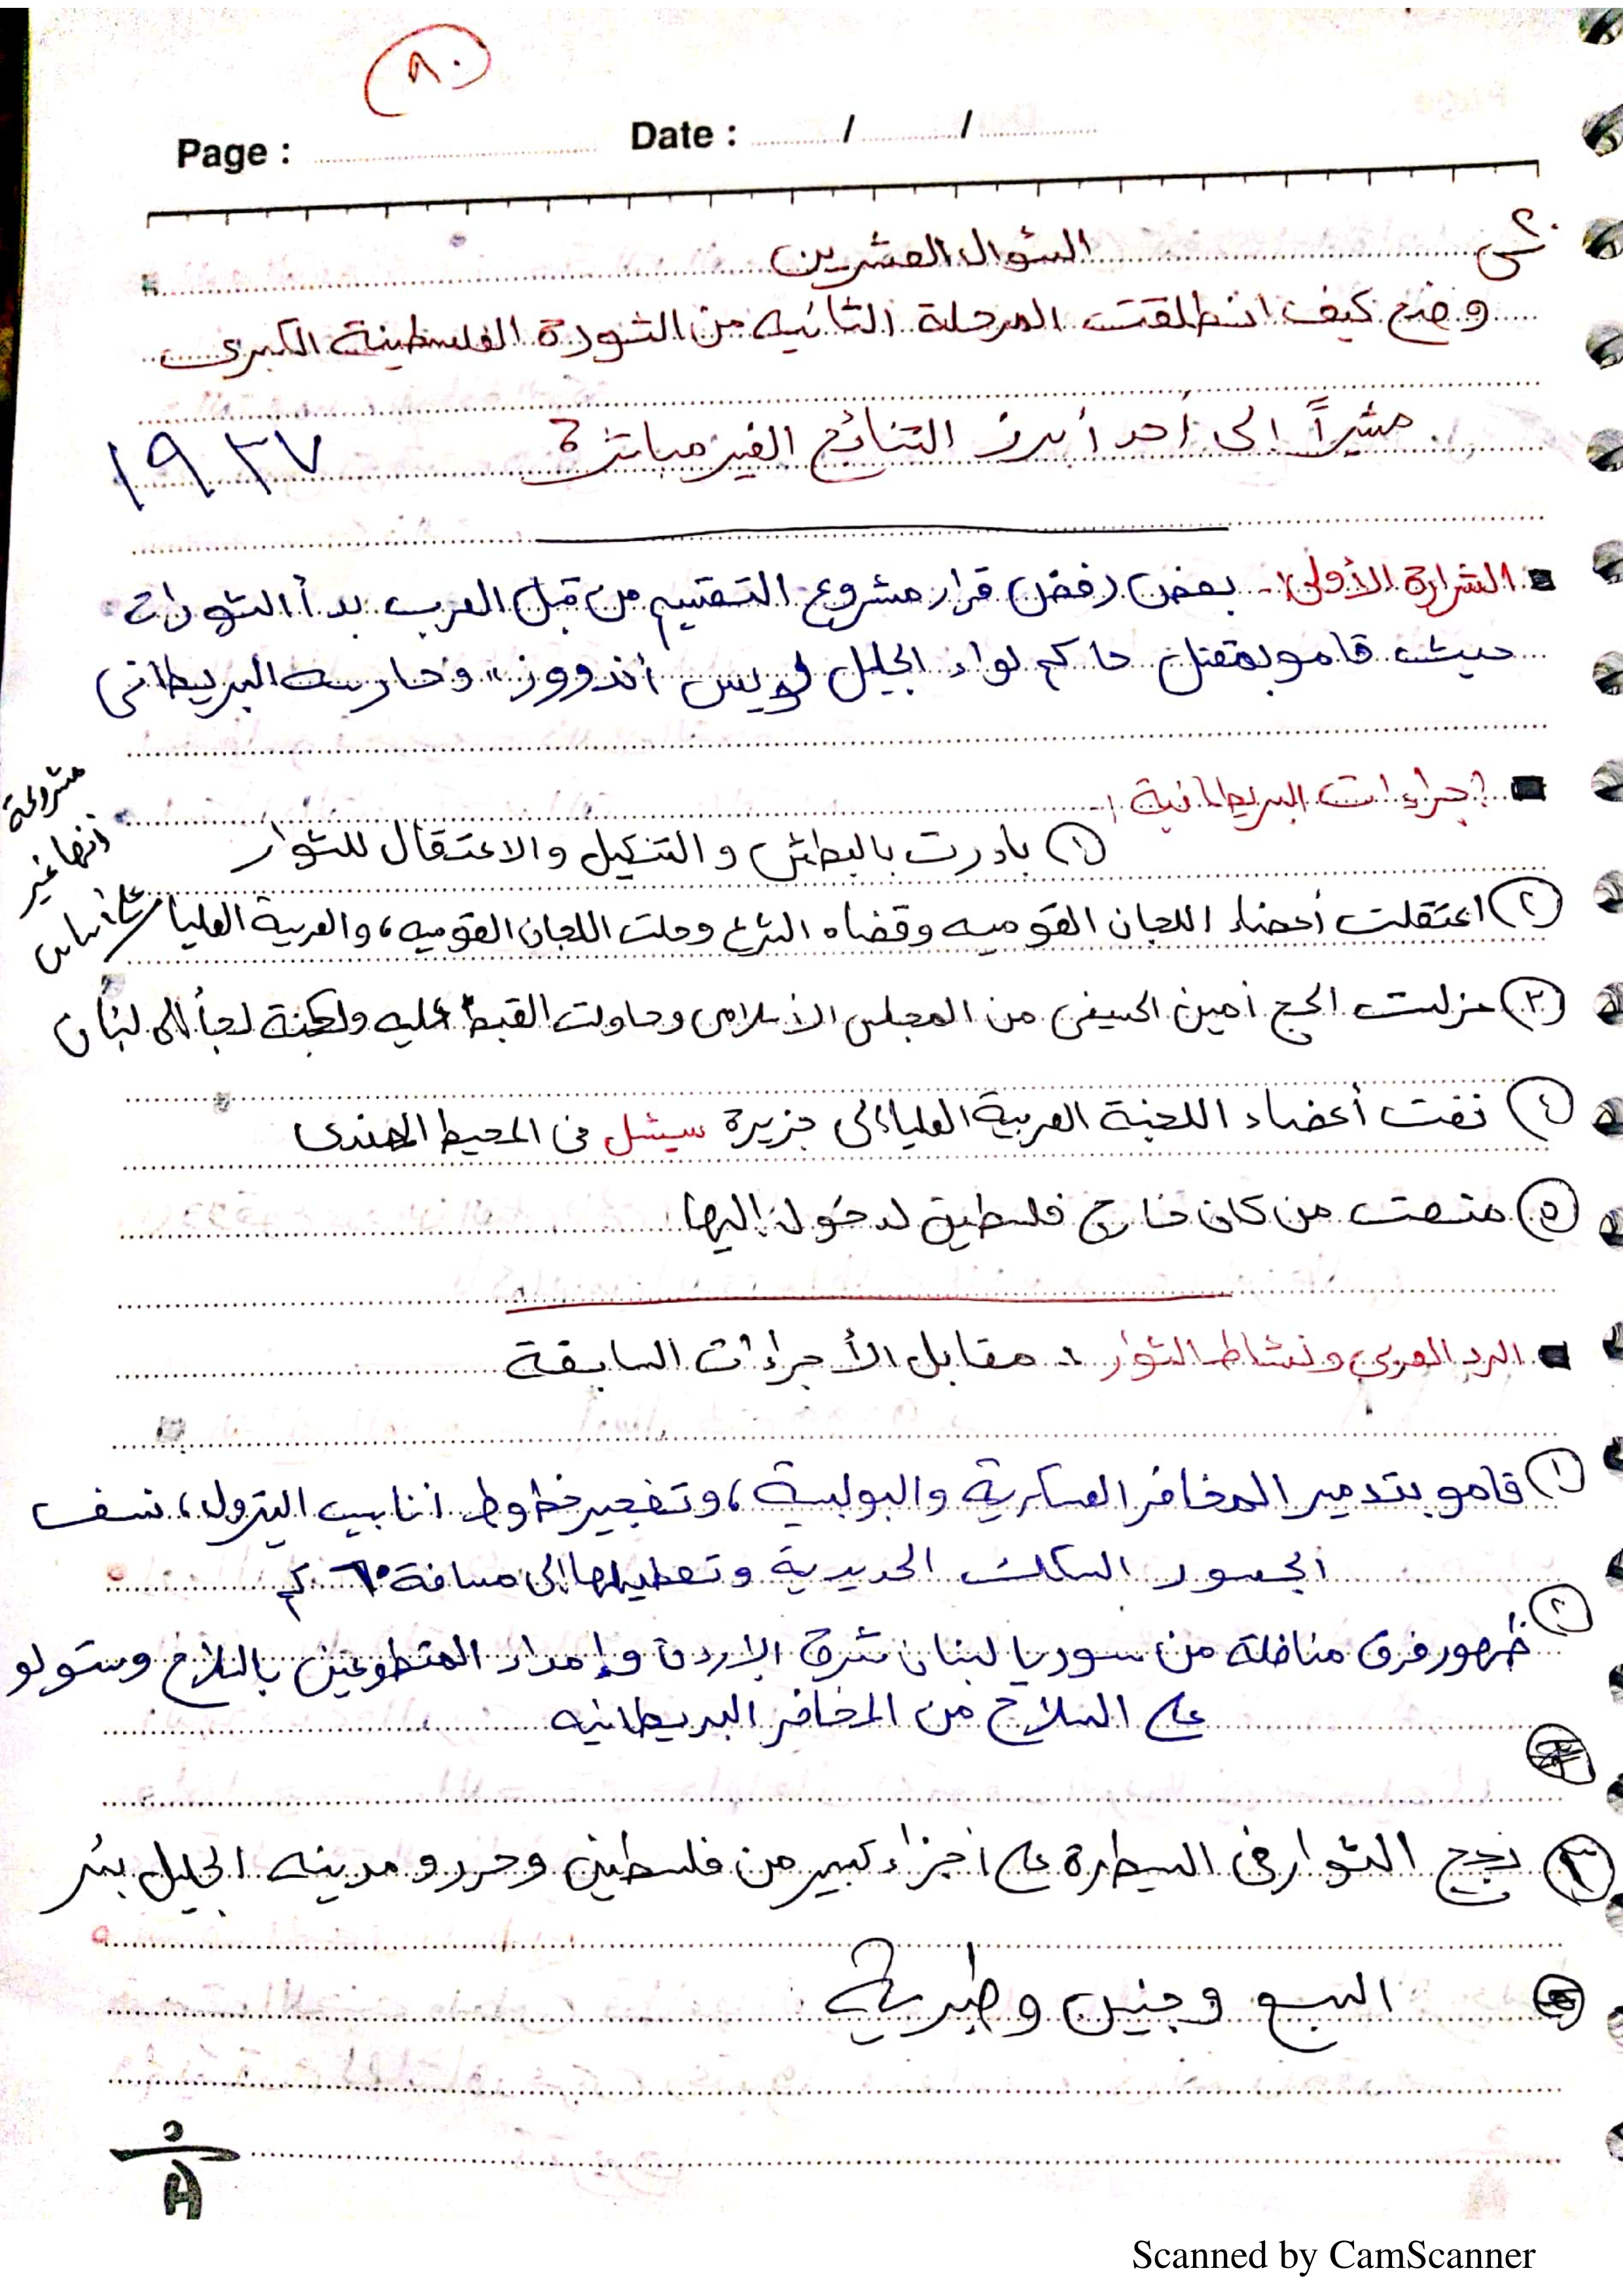 ٨٠
Page : Date : / /
س٢٠
السؤال العشرين
وضح كيف انطلقت المرحلة الثانيه من الثورة الفلسطينة الكبرى
مشيراً إلى أحد أبرز النتائج الغير مباشرة؟
١٩٣٧
الشرارة الأولى:- بعض رفض قرار مشروع التقسيم من قبل العرب بدأ الثورات
حيث قامو بمقتل حاكم لواء الجليل لويس أندووز" وحارسه البريطاني
إجراءات البريطانية :-
١ بادرت بالبطش و التنكيل والاعتقال للثوار
٢ اعتقلت أعضاء اللجان القوميه وقضاه الشرع وحلت اللجان القوميه، والعربية العليا
على أساس أنها غير مشروعة
٣ عزلت الحج أمين الحسيني من المجلس الأسلامي وحاولت القبط عليه ولكنة لجأ الى لبنان
٤ نفت أعضاء اللجنة العربية العليا إلى جزيرة سيشل في المحيط الهندى
٥ منعت من كان خارج فلسطين لدخول إليها
الرد العربي ونشاط الثوار :- مقابل الأجراءات السابقة
١ قامو بتدمير المخافر العسكرية والبولسية، وتفجير خطوط انابيب البترول، نسف
الجسور السكك الحديدية وتعطيلها إلى مسافة ٦٠ كم
٢ ظهور فرق مناضلة من سوريا لبنان شرق الاردن وإمداد المتطوعين بالسلاح وستولو
على السلاح من المخافر البريطانيه
٣ نجح الثوار في السيطرة على أجزاء كبير من فلسطين وحررو مدينه الجليل بئر
السبع وجنين وطبرية